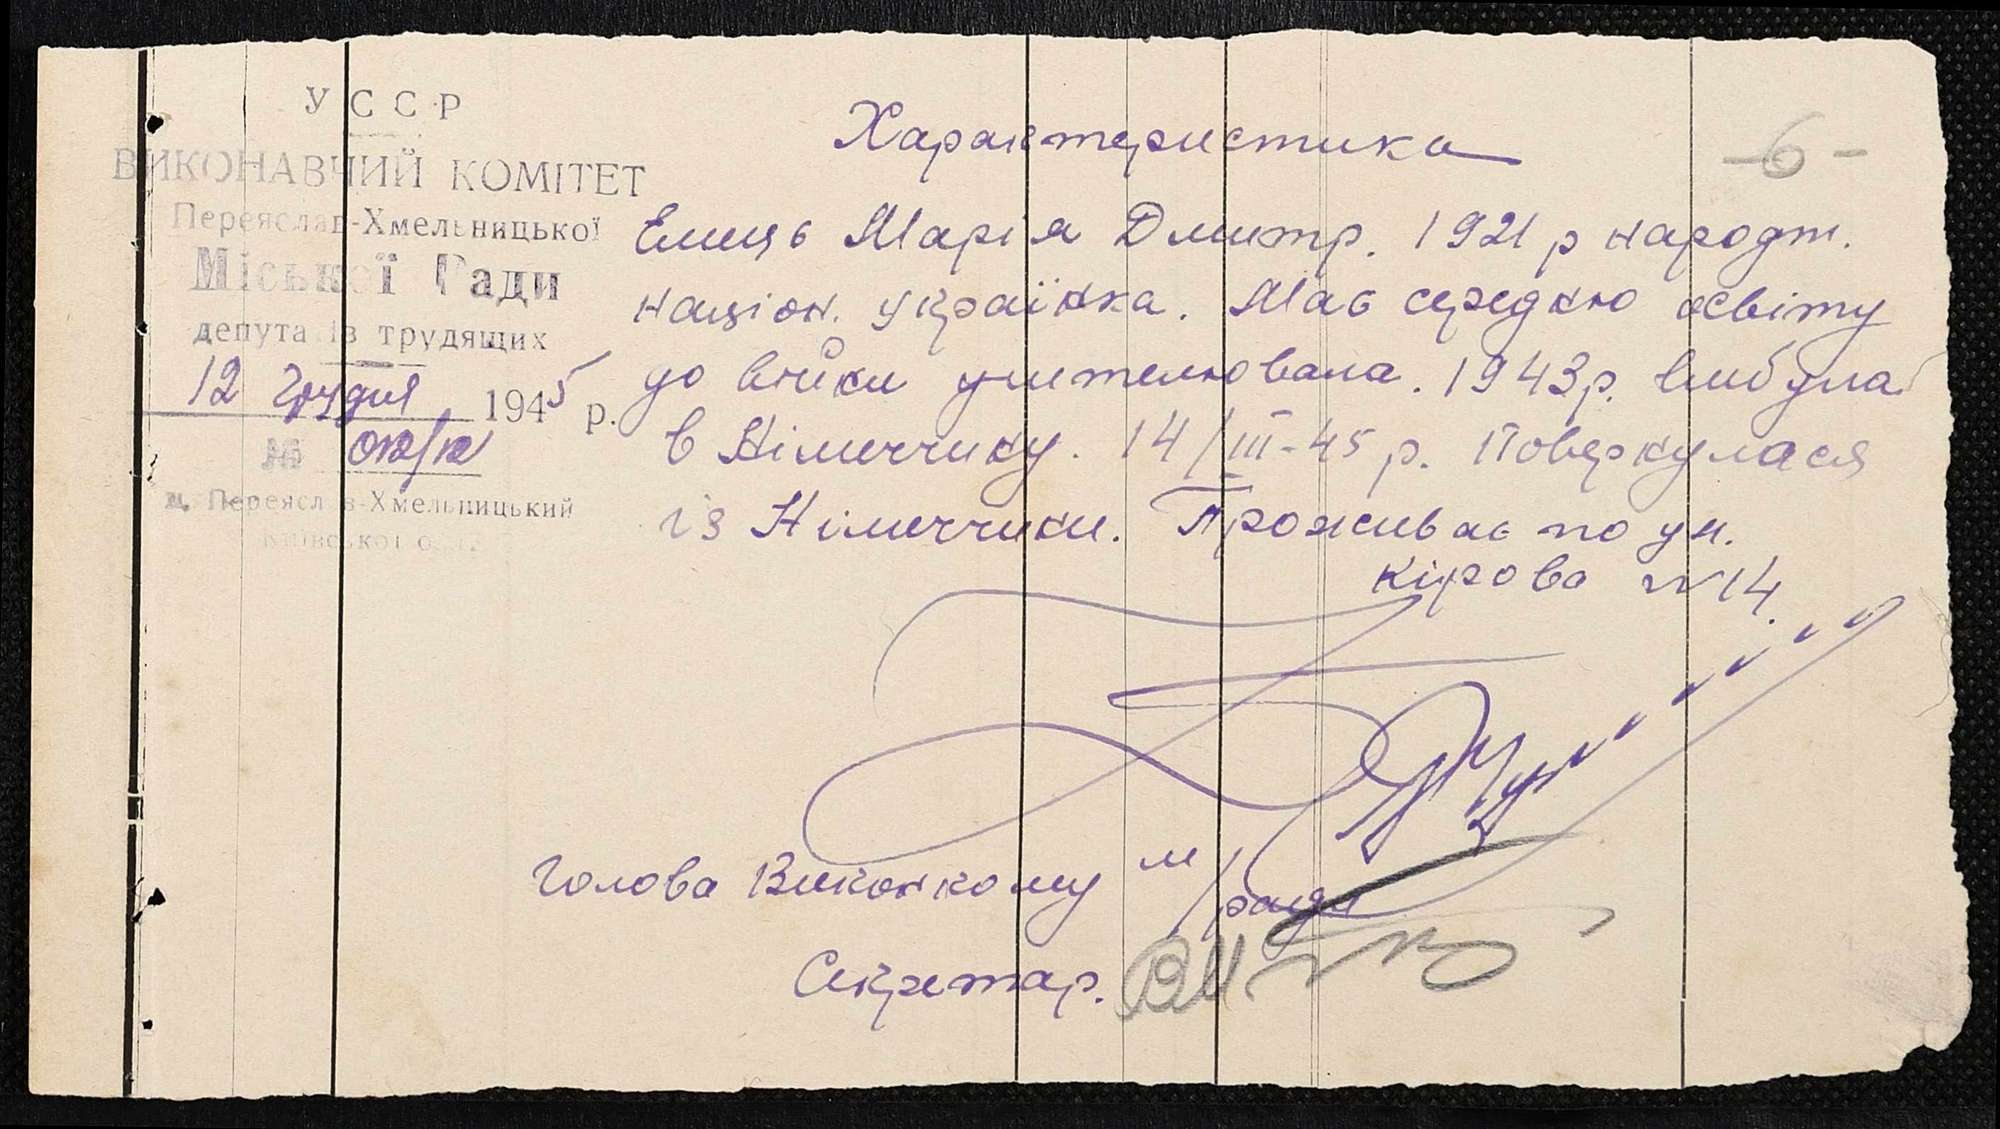 УССР
ВИКОНАВЧИЙ КОМІТЕТ
Переяслав-Хмельницької
Міської Ради
депутатів трудящих
12 грудня 1945 р.
№
м. Переяслав-Хмельницький
Київської обл.
-6-
Характеристика
Емець Марія Дмитр. 1921 р народж.
націон. українка. Має середню освіту
до війни учителювала. 1943 р. вибула
в Німеччину. 14/III-45 р. Повернулася
із Німеччини. Проживає по ул.
Кірова №14.
Голова Виконкому м/ради
Секретар.